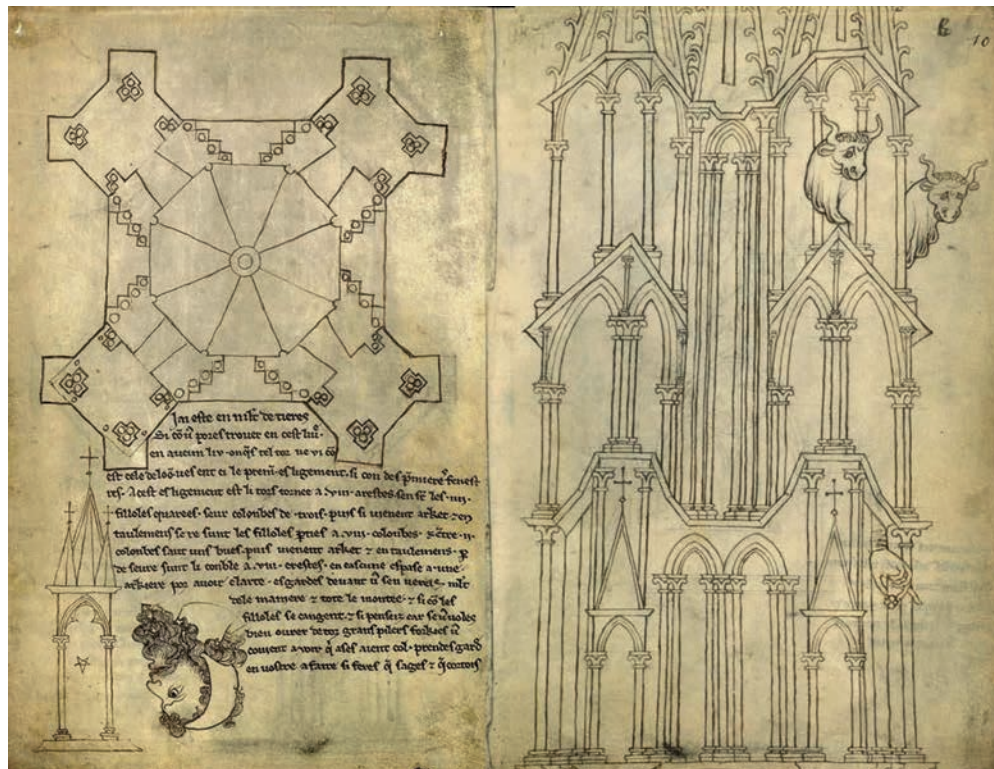 Jai este en mlt de tieres
Si cō ū pores trouer en cest liū.
en aucun liu · onq̄s tel tor ne vi cō
est cele de loō · ves ent ci le premī · esligement · si con des pͥmieres fenest
res · A cest esligement est li tors tornee a · viii · arestes · sen sē les · iiii ·
filloles quarees · seur colonbes de · trois · puis si uienent arket · ⁊ en
taulemens se re sunt les filloles pties a · viii · colonbes · ⁊ ētre · ii ·
colonbes saut uns bues · puis uienent arket ⁊ en taulemens · p
de seure sunt li conble a · viii · crestes · en cascune espase a · une ·
arkiere por auoir clarte · esgardes deuant ū sen ueres · mlt
dele maniere ⁊ tote le montee · ⁊ si cō les
filloles se cangent · ⁊ si penseiz car se ū uoles
bien ourer de toz grans pilers forkies ū
couient auoir q̄ ases aient col · prendes gard
en uostre afaire si feres q̄ sages ⁊ q̄ cortois
10